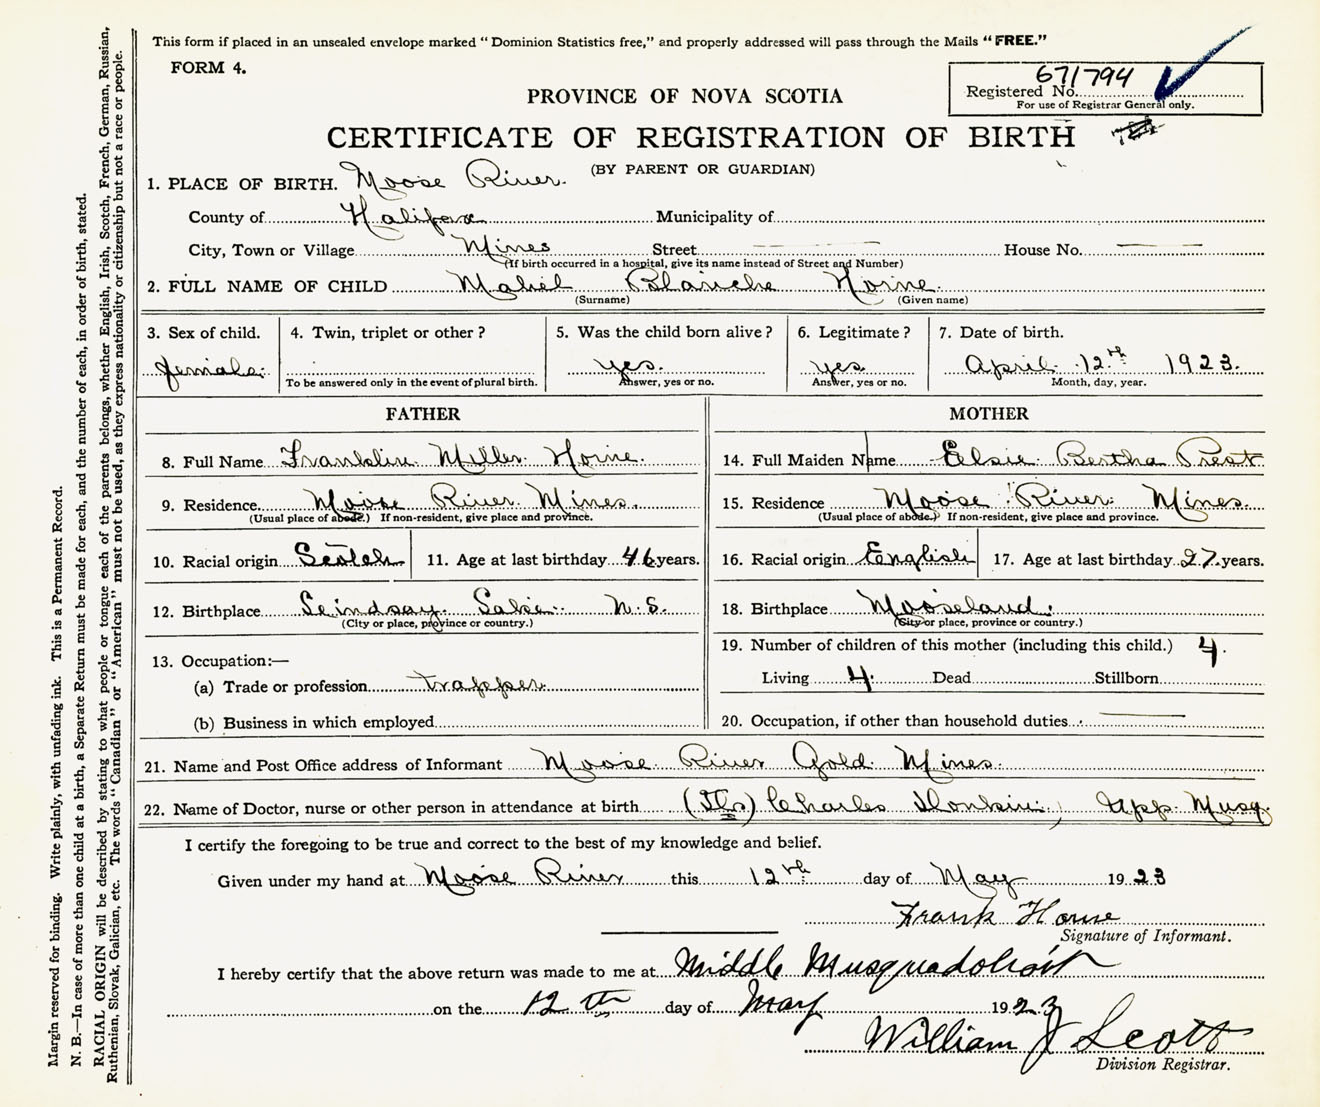 This form if placed in an unsealed envelope marked "Dominion Statistics free," and properly addressed will pass through the Mails "FREE."
FORM 4.
671794
Registered No.
For use of Registrar General only.
PROVINCE OF NOVA SCOTIA
CERTIFICATE OF REGISTRATION OF BIRTH
(BY PARENT OR GUARDIAN)
1. PLACE OF BIRTH. Moose River.
County of Halifax Municipality of
City, Town or Village Mines Street House No.
(If birth occurred in a hospital, give its name instead of Street and Number)
2. FULL NAME OF CHILD Mabel Blanche Horne.
(Surname) (Given name)
3. Sex of child. 4. Twin, triplet or other? 5. Was the child born alive? 6. Legitimate? 7. Date of birth.
female. yes. yes April 12th 1923.
To be answered only in the event of plural birth. Answer, yes or no. Answer, yes or no. Month, day, year.
FATHER MOTHER
8. Full Name Franklin Miller Horne. 14. Full Maiden Name Elsie Bertha Prest.
9. Residence Moose River Mines. 15. Residence Moose River Mines
(Usual place of abode.) If non-resident, give place and province. (Usual place of abode.) If non-resident, give place and province.
10. Racial origin Scotch 11. Age at last birthday 46 years. 16. Racial origin English 17. Age at last birthday 27 years.
12. Birthplace Lindsay Lake N.S. 18. Birthplace Mooseland.
(City or place, province or country.) (City or place, province or country.)
19. Number of children of this mother (including this child.) 4.
13. Occupation:—
(a) Trade or profession trapper Living 4. Dead Stillborn
(b) Business in which employed 20. Occupation, if other than household duties
21. Name and Post Office address of Informant Moose River Gold Mines.
22. Name of Doctor, nurse or other person in attendance at birth Charles Upp. Musq.
I certify the foregoing to be true and correct to the best of my knowledge and belief.
Given under my hand at Moose River this 12th day of May 1923
Frank Horne
Signature of Informant.
I hereby certify that the above return was made to me at Middle Musquodoboit
on the 12th day of May 1923
William J Scott
Division Registrar.
Margin reserved for binding. Write plainly, with unfading ink. This is a Permanent Record.
N. B.—In case of more than one child at a birth, a Separate Return must be made for each, and the number of each, in order of birth, stated.
RACIAL ORIGIN will be described by stating to what people or tongue each of the parents belongs, whether English, Irish, Scotch, French, German, Russian,
Ruthenian, Slovak, Galician, etc. The words "Canadian" or "American" must not be used, as they express nationality or citizenship but not a race or people.